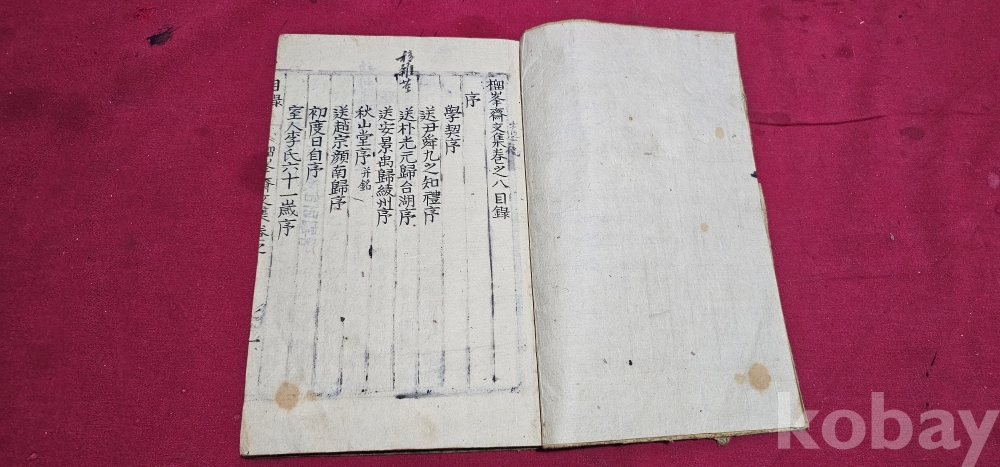 榴峯齋文集卷之八目錄
序
學契序
送尹舜九之知禮序
送朴光元歸台湖序
送安景禹歸綾州序
秋山堂序 并銘
送越宗顔南歸序
初度日自序
室人李氏六十一歲序
目錄
榴峯齋文集卷之
kobay